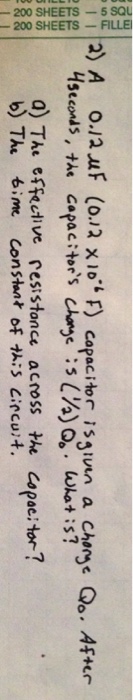 200 SHEETS — 5 SQU
200 SHEETS — FILLE
2) A 0.12 uF (0.12 x 10⁻⁶ F) capacitor is given a charge Q₀. After
4 seconds, the capacitor's charge is (1/2) Q₀. What is?
a) The effective resistance across the capacitor?
b) The time constant of this circuit.